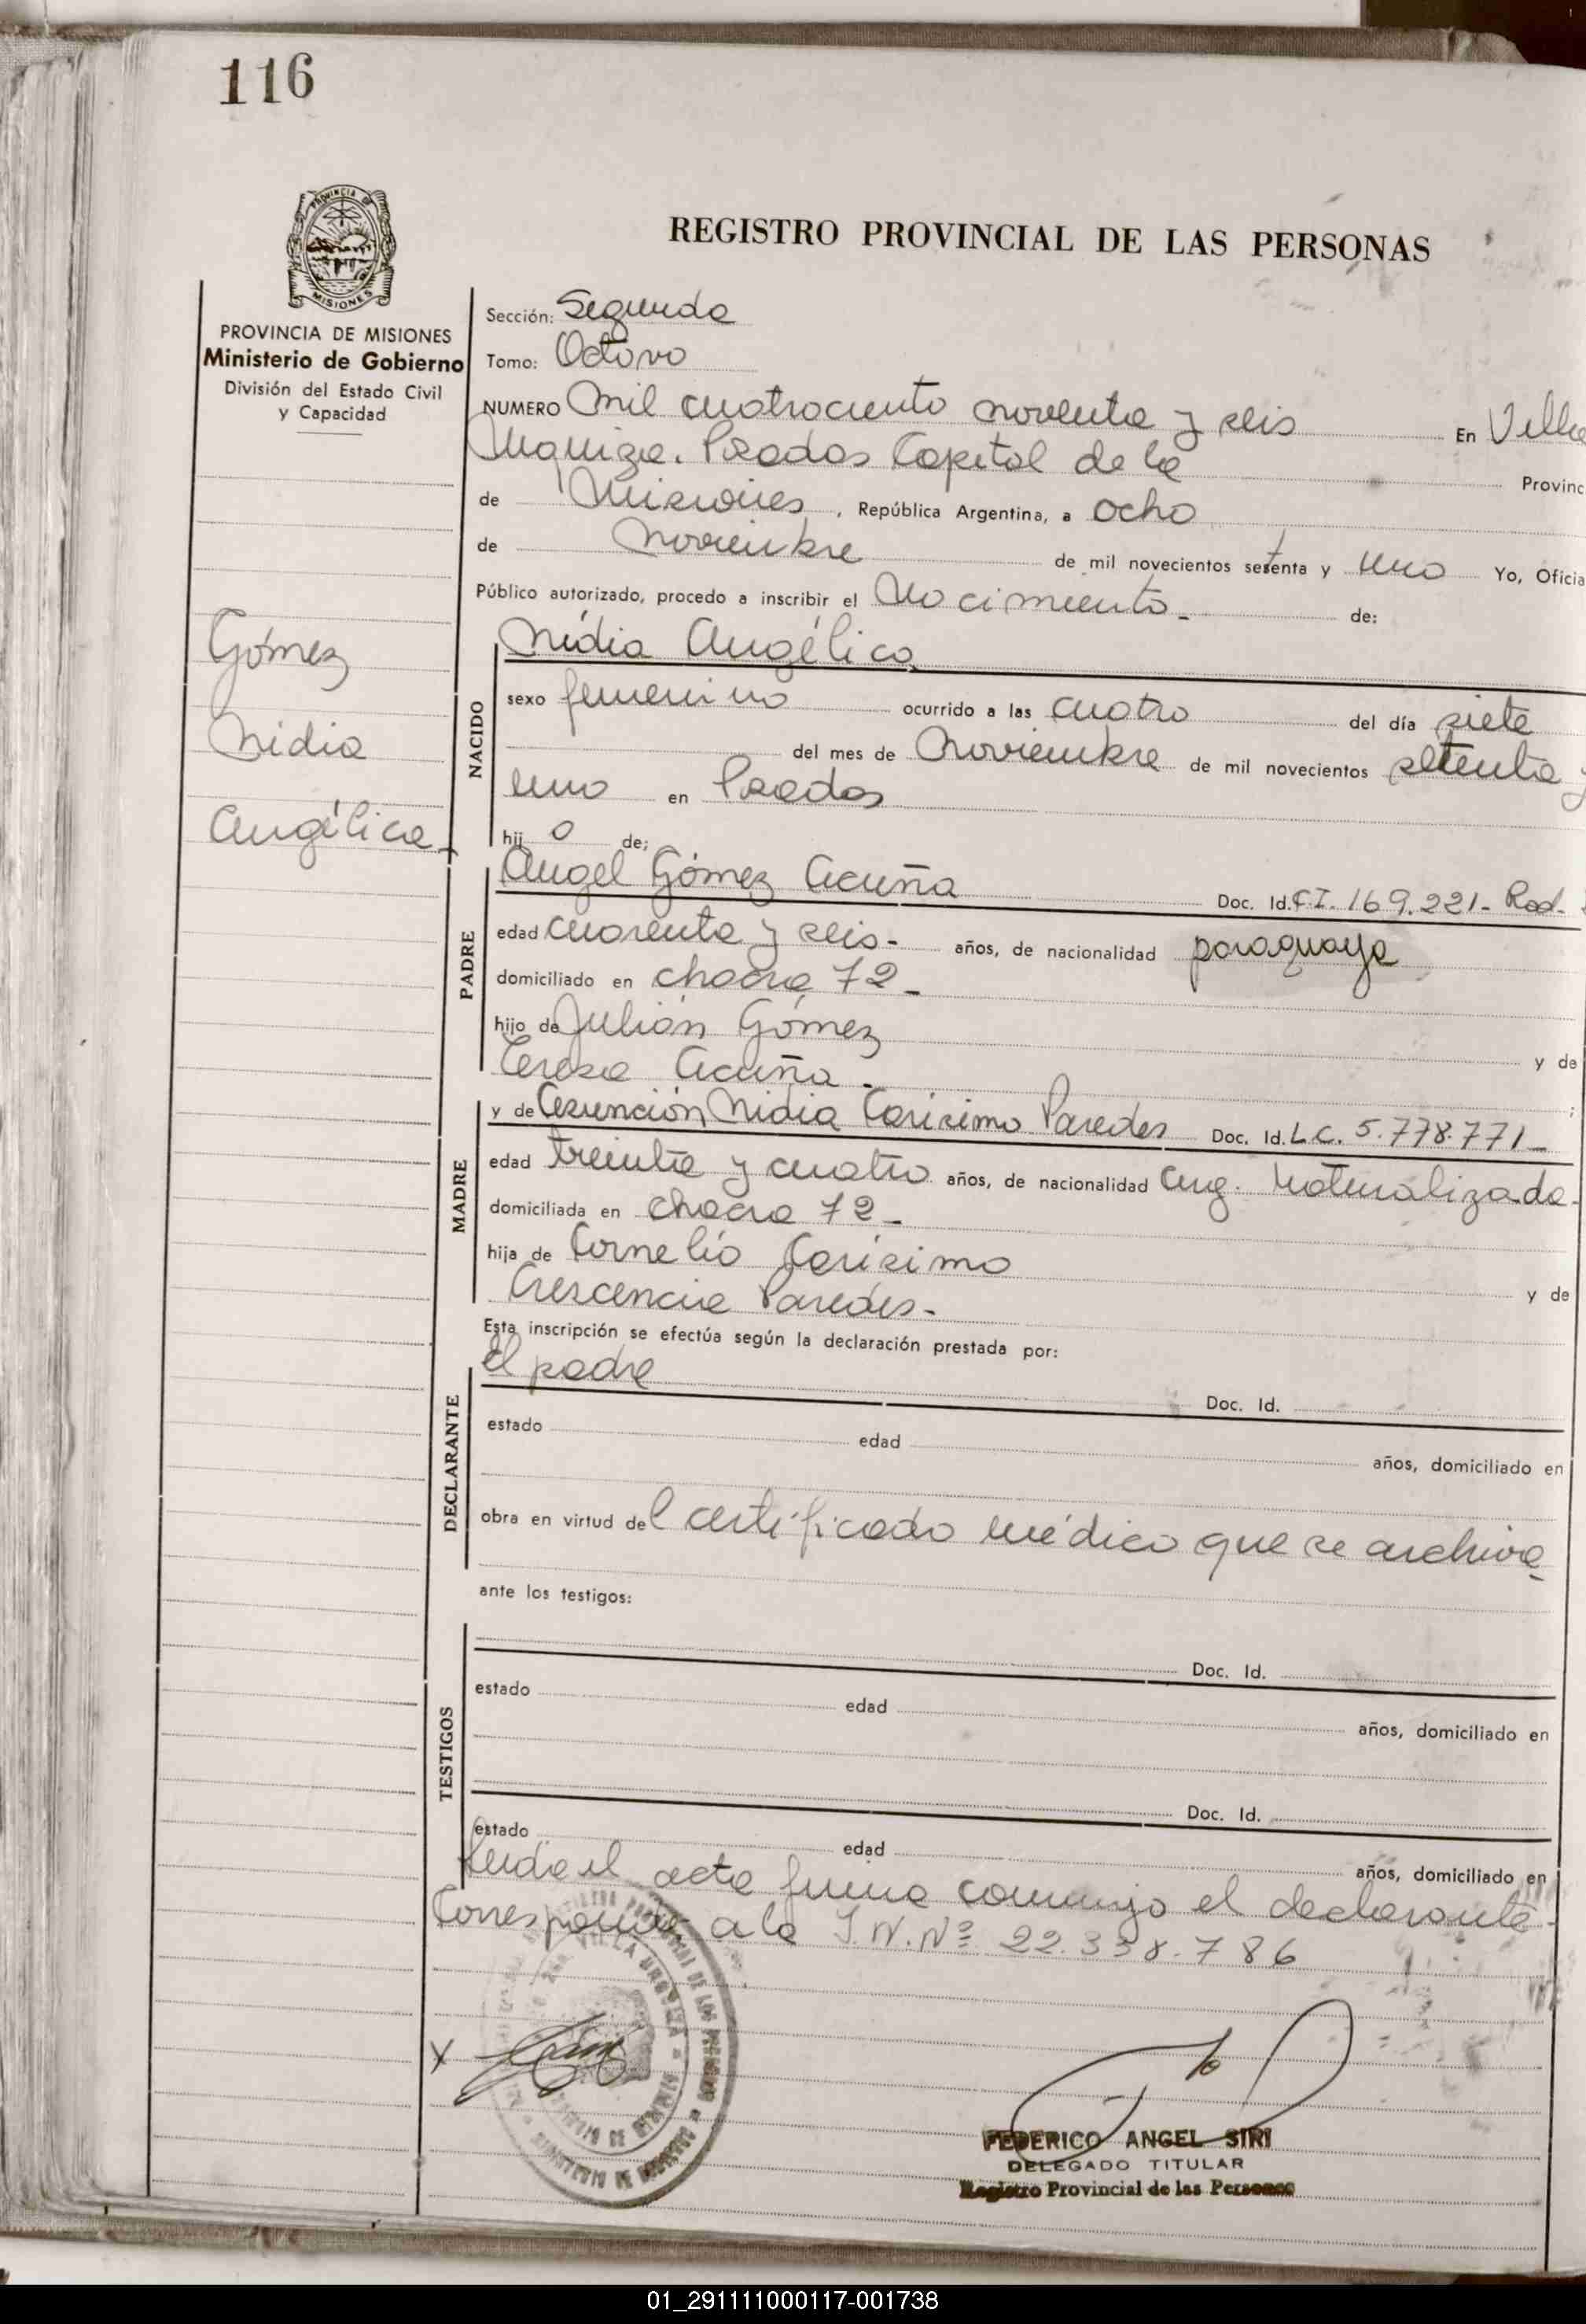 116
PROVINCIA DE
MISIONES
PROVINCIA DE MISIONES
Ministerio de Gobierno
División del Estado Civil
y Capacidad
Gómez
Nidia
Angélica
REGISTRO PROVINCIAL DE LAS PERSONAS
Sección: Segunda
Tomo: Octavo
NUMERO Mil cuatrociento noventa y seis En Villa
Urquiza. Posadas Capital de la Provinc
de Misiones, República Argentina, a ocho
de Noviembre de mil novecientos setenta y uno Yo, Oficia
Público autorizado, procedo a inscribir el Nacimiento - de:
NACIDO
Nidia Angélica
sexo femenino ocurrido a las cuatro del día siete
del mes de Noviembre de mil novecientos setenta y
uno en Posadas
hij a de:
PADRE
Angel Gómez Acuña Doc. Id. C.I. 169.221- Pod.
edad cuarenta y seis - años, de nacionalidad paraguaya
domiciliado en chacra 72 -
hijo de Julián Gómez y de
Teresa Acuña -
MADRE
y de Asunción Nidia Carisimo Paredes Doc. Id. L.C. 5.778.771 -
edad treinta y cuatro años, de nacionalidad Arg. Naturalizada -
domiciliada en chacra 72 -
hija de Cornelio Carísimo y de
Crescencia Paredes -
Esta inscripción se efectúa según la declaración prestada por:
DECLARANTE
el padre Doc. Id.
estado edad años, domiciliado en
obra en virtud del certificado médico que se archiva -
ante los testigos:
TESTIGOS
Doc. Id.
estado edad años, domiciliado en
Doc. Id.
estado edad años, domiciliado en
Leida el acta firma conmigo el declarante -
Corresponde a la I.N.Nº 22.338.786
X
FEDERICO ANGEL SIRI
DELEGADO TITULAR
Registro Provincial de las Personas
01_291111000117-001738